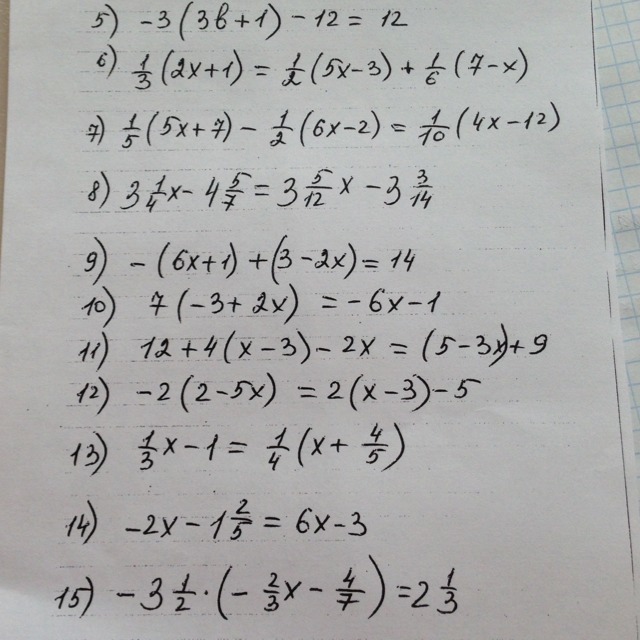 5) -3(3b+1)-12=12
6) 1/3(2x+1)=1/2(5x-3)+1/6(7-x)
7) 1/5(5x+7)-1/2(6x-2)=1/10(4x-12)
8) 3 1/4x-4 5/7=3 5/12x-3 3/14
9) -(6x+1)+(3-2x)=14
10) 7(-3+2x)=-6x-1
11) 12+4(x-3)-2x=(5-3x)+9
12) -2(2-5x)=2(x-3)-5
13) 1/3x-1=1/4(x+4/5)
14) -2x-1 2/5=6x-3
15) -3 1/2·(-2/3x-4/7)=2 1/3